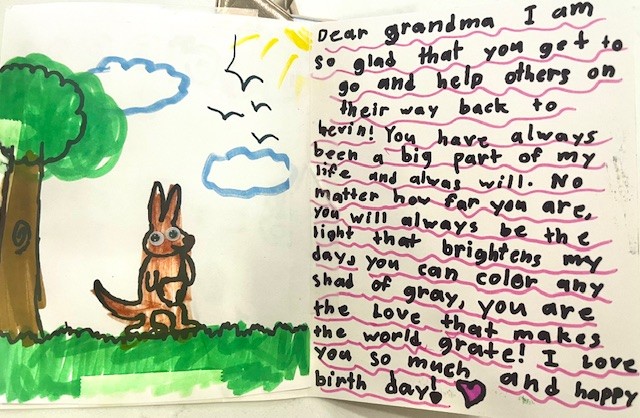 Dear grandma I am
so glad that you get to
go and help others on
their way back to
hevin! You have always
been a big part of my
life and alwas will. No
matter how far you are,
you will always be the
light that brightens my
day, you can color any
shad of gray, you are
the love that makes
the world grate! I love
you so much and happy
birth day!